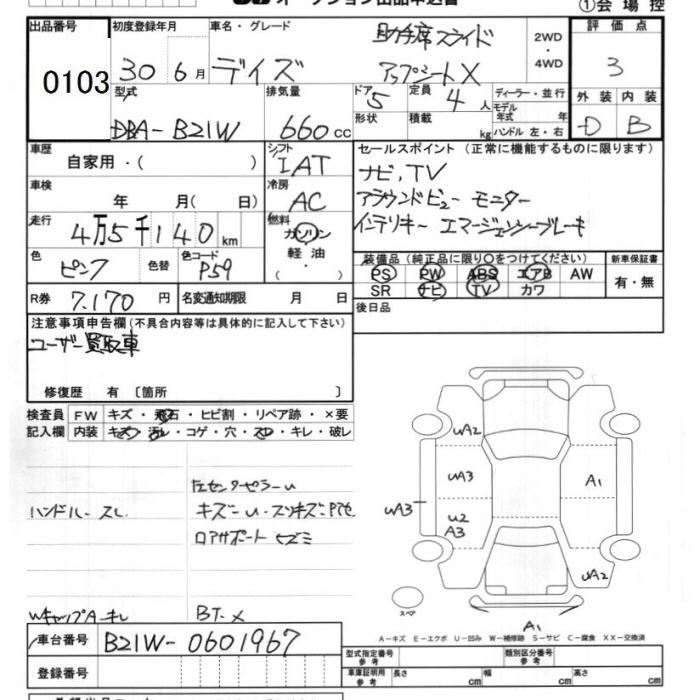 オークション出品申込書
①会場控
出品番号 0103
初度登録年月 30年6月
車名・グレード デイズ 助手席スライド アップシートX
2WD・4WD
評価点 3
型式 DBA-B21W
排気量 660cc
ドア 5
定員 4人
形状
積載 kg
ディーラー・並行
モデル年式 年
ハンドル 左・右
外装 D
内装 B
車歴 自家用・( )
シフト IAT
セールスポイント (正常に機能するものに限ります)
ナビ、TV
アラウンドビュー モニター
インテリキー エマージェンシーブレーキ
車検 年 月( 日)
冷房 AC
走行 4万5千140km
燃料 ガソリン・軽油・( )
色 ピンク
色替
色コード P59
装備品 (純正品に限り○をつけてください)
PS PW ABS エアB AW
SR ナビ TV カワ
新車保証書 有・無
R券 7,170円
名変通知期限 月 日
後日品
注意事項申告欄 (不具合内容等は具体的に記入して下さい)
ユーザー買取車
修復歴 有 〔箇所 〕
検査員記入欄
FW キズ・飛石・ヒビ割・リペア跡・×要
内装 キズ・汚レ・コゲ・穴・スレ・キレ・破レ
左センタピラーU
ハンドル-スレ
ロアサポート ヒズミ
WキャップA-キレ
BT-×
UA2
UA3
UA3
U2
A3
A1
UA2
A1
スペア
A-キズ E-エクボ U-凹み W-補修跡 S-サビ C-腐食 XX-交換済
車台番号 B21W-0601967
登録番号
型式指定番号 参考
類別区分番号 参考
車庫証明用 参考 長さ cm 幅 cm 高さ cm